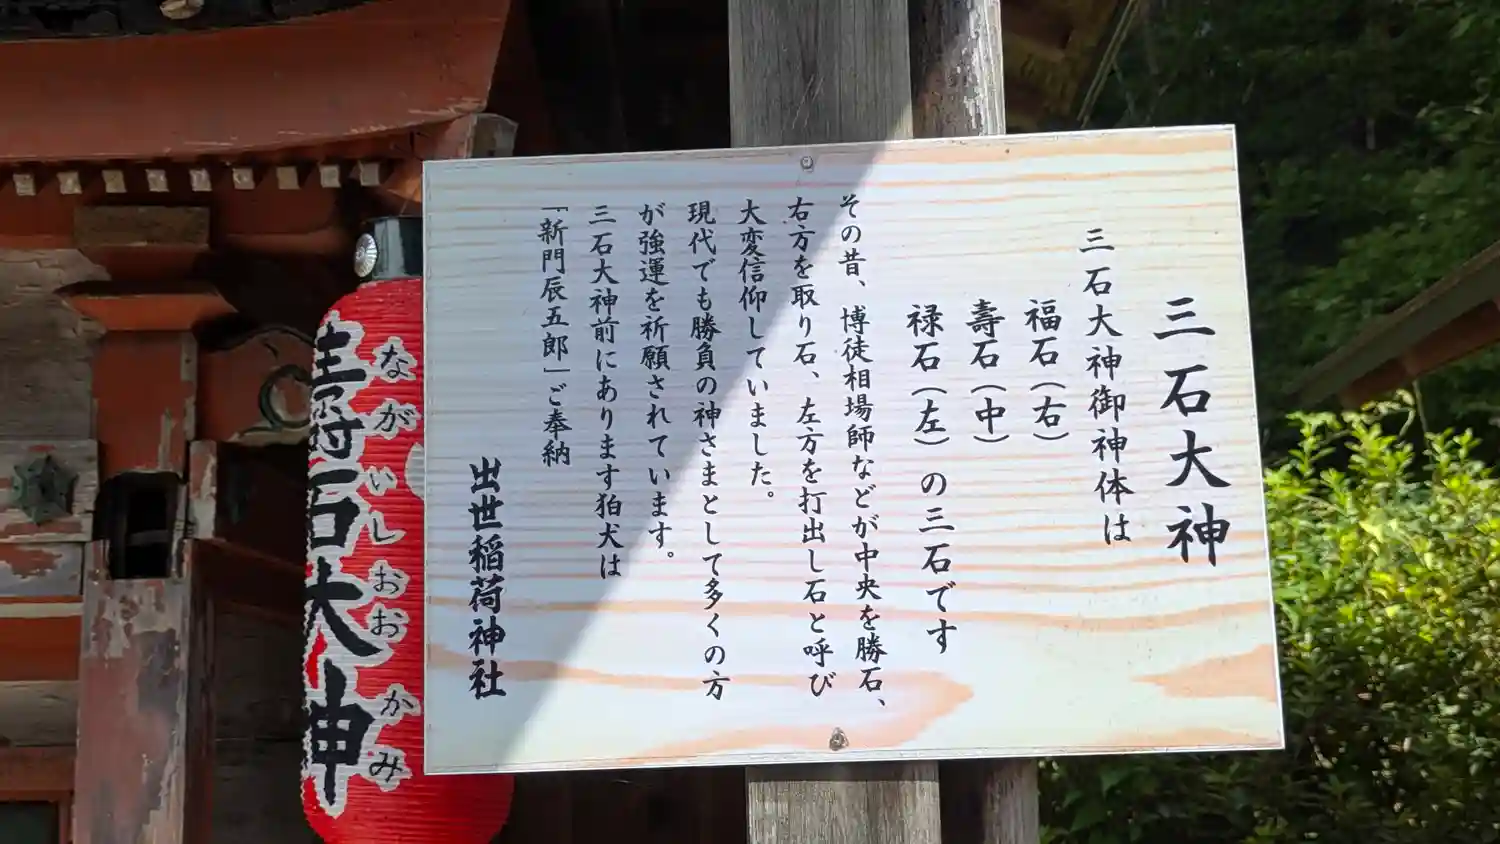 三石大神
三石大神御神体は
福石（右）
壽石（中）
禄石（左）の三石です
その昔、博徒相場師などが中央を勝石、
右方を取り石、左方を打出し石と呼び
大変信仰していました。
現代でも勝負の神さまとして多くの方
が強運を祈願されています。
三石大神前にあります狛犬は
「新門辰五郎」ご奉納
出世稲荷神社
壽石大神
ながいしおおかみ